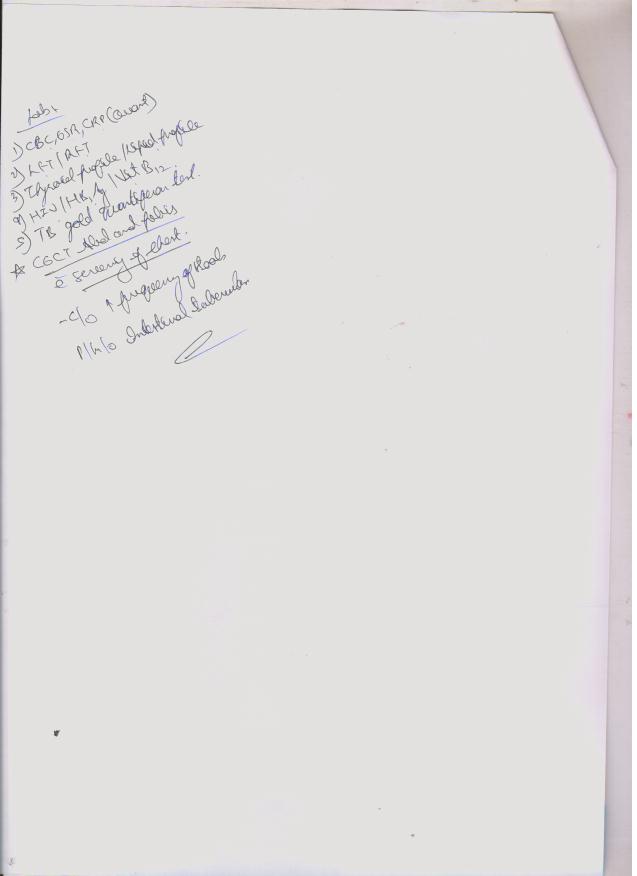 Labs
1) CBC, ESR, CRP (Quant)
2) LFT / RFT
3) Thyroid profile / Lipid profile
4) HIV / HBsAg / Vit B12.
5) TB gold Quantiferon test.
☆ CECT Abd and pelvis
c̄ screening of chest.
- C/O ↑ frequency of stools
P/H/O Intestinal tuberculosis